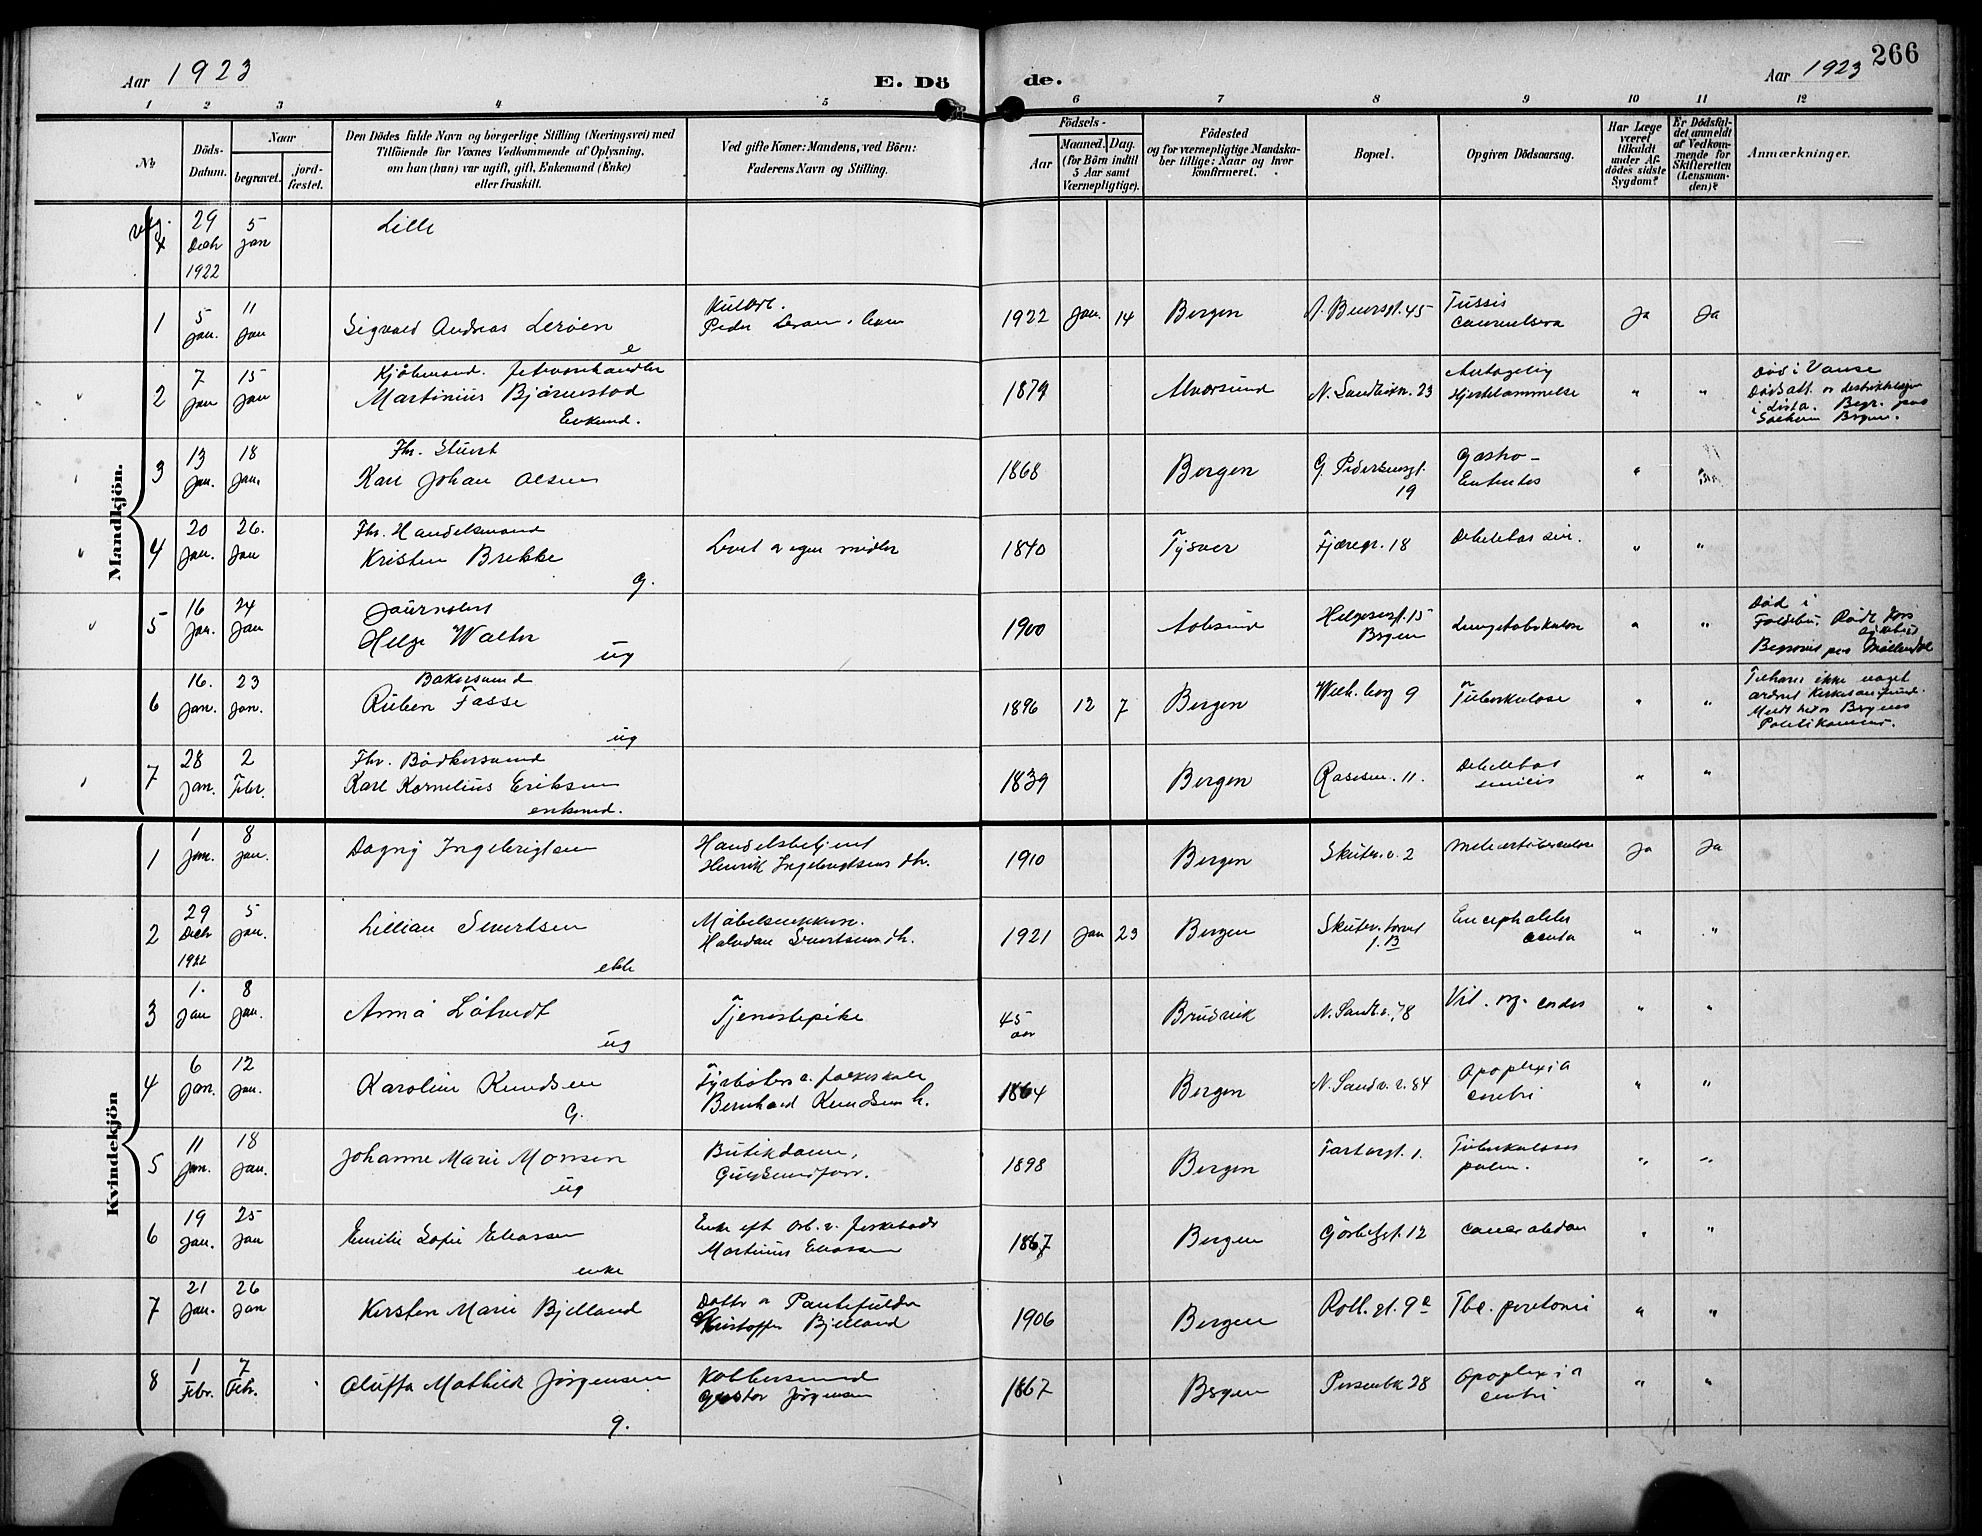 Aar 1923
E. Dö de.
Aar 1923
266
1 2 3 4 5 6 7 8 9 10 11 12
No
Döds-Datum.
Naar
begravet.
jord-fæstet.
Den Dödes fulde Navn og borgerlige Stilling (Næringsvei) med
Tilföiende for Voxnes Vedkommende af Oplysning,
om han (hun) var ugift, gift, Enkemand (Enke)
eller fraskilt.
Ved gifte Koner: Mandens, ved Börn:
Faderens Navn og Stilling.
Födsels-
Aar
Maaned. Dag.
(for Börn indtil
5 Aar samt
Værnepligtige).
Födested
og for værnepligtige Mandska-
ber tillige: Naar og hvor
konfirmeret.
Bopæl.
Opgiven Dödsaarsag.
Har Læge
været
tilkaldt
under Af-
dödes sidste
Sygdom?
Er Dödsfal-
det anmeldt
af Vedkom-
mende for
Skifteretten
(Lensman-
den)?
Anmærkninger.
Mandkjön.
29 Decbr 1922 5 Jan Lille
1 5 Jan. 11 Jan Sigvald Andreas Leröen
Peder
1922 Jan. 14 Bergen 45 Tussis
Ja Ja
2 7 Jan 15 Jan
Martinius Bjørnestad
Enkemd.
1879 Alversund N. Sandviksv. 23
Hjertelammelse " "
Død i Vanse
Lista. Begr. paa
Bergen.
3 13 Jan. 18 Jan.
Karl Johan Olsen
1868 Bergen G. Pedersensgt. 19 Gastro-
" "
4 20 Jan. 26. Jan
Fhv. Handelsmand
Kristen Brekke
g.
Levet a egne midler
1840 Tysvær Fjæregr. 18 Debilitas sen. " "
5 16 Jan. 24 Jan
Journalist
Helge Walter
ug
1900 Aalesund Helgesensgt. 15
Bergen
Lungetuberkulose " "
Død i
Røde Kors
Begravet paa Møllendal
6 16. Jan. 23 Jan.
Bakersvend
Ruben Fasse
ug
1896 12 7 Bergen 9 Tuberkulose " "
Tilhører ikke noget
ordnet Kirkesamfund.
Bergens
Politikammer.
7 28 Jan. 2 Febr.
Fhv. Bødkersvend
Karl Kornelius Eriksen
enkemd.
1839 Bergen Rosesm. 11. Debilitas
senilis " "
Kvindekjön
1 1 Jan. 8 Jan. Dagny Ingebrigtsen
Handelsbetjent
Henrik Ingebrigtsens dtr.
1910 Bergen Skutev. v. 2 Ja Ja
2 29 Decbr 1922 5 Jan. Lillian Sivertsen
ekte
Møbelsnekker.
Halvdan Sivertsens dtr.
1921 Jan 23 Bergen Skutev. torvet
1.B
Encephalitis
acuta " "
3 1. Jan 8 Jan. Anna Løtvedt
ug
Tjenestepike
45
aar
Bruvik N. Sandv. v. 78 Vit. org. cordis " "
4 6 Jan. 12 Jan. Karoline Knudsen
G.
Fyrbøter v. folkeskole
Bernhard Knudsens h.
1864 Bergen N. Sandv. v. 84 Apoplexia
cerebri " "
5 11 Jan. 18 Jan. Johanne Marie Monsen
ug
Butikdame,
1898 Bergen Tartargt. 1. Tuberkulosis
pulm. " "
6 19 Jan. 25 Jan Emilie Sofie Eliassen
enke
Enke eft. Arb.
Martinius Eliassen
1867 Bergen 12 Cancer abdom " "
7 21 Jan. 26 Jan Kirsten Marie Bjelland
Datter a
Kristoffer Bjelland
1906 Bergen Roll. gt. 9 Tbc. peritonei " "
8 1 Febr. 7 Febr. Oluffa Mathilde Jørgensen
g.
Kobbersmed
Gustav Jørgensen
1867 Bergen 28 Apoplexia
cerebri " "